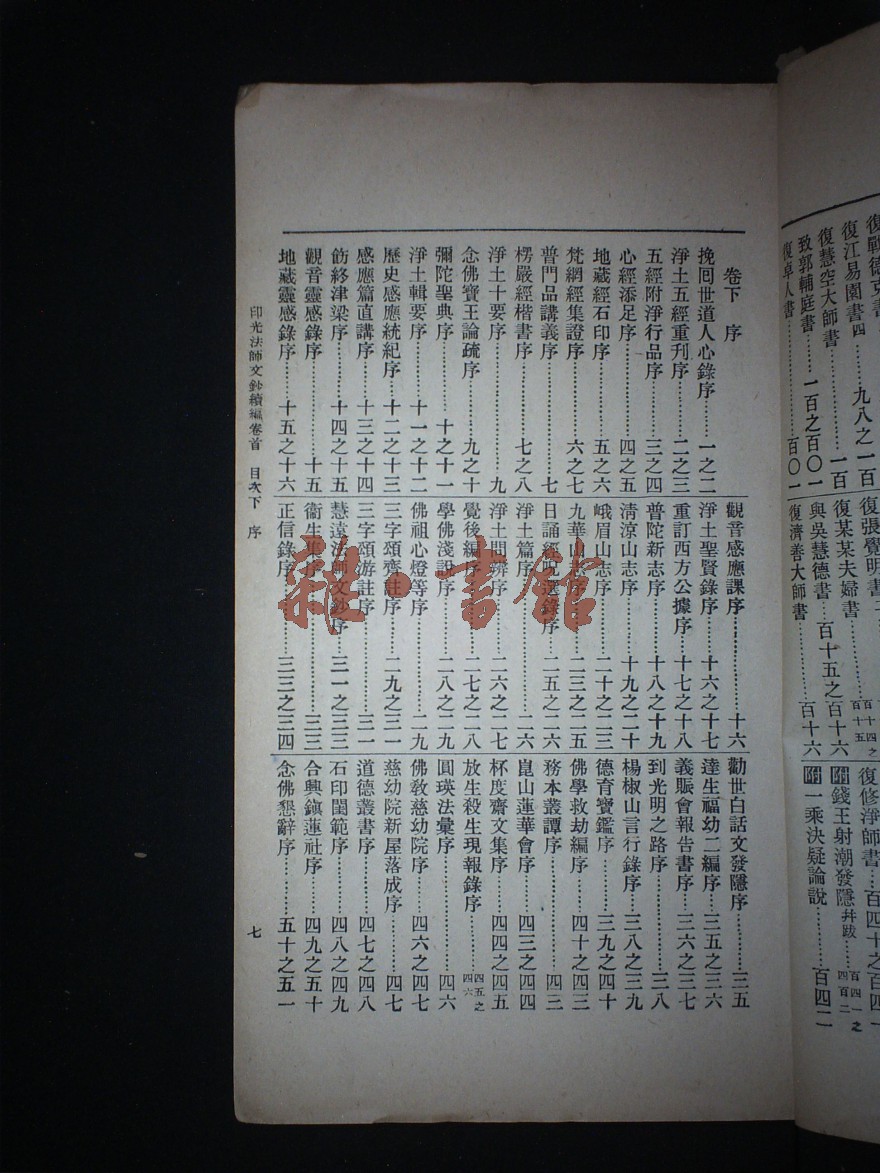 復江易園書四……九八之一百
復慧空大師書……一百
致郭輔庭書……一百之百〇一
復卓人書……百〇一
復張覺明書
復某某夫婦書……百十四之百十五
與吳慧德書……百十五之百十六
復濟善大師書……百十六
復修淨師書……百四十之百四一
附錢王射潮發隱并跋……百四一之四百二
附一乘決疑論說……百四二
卷下 序
挽回世道人心錄序……一之二
淨土五經重刊序……二之三
五經附淨行品序……三之四
心經添足序……四之五
地藏經石印序……五之六
梵網經集證序……六之七
普門品講義序……七
楞嚴經楷書序……七之八
淨土十要序……九
念佛寶王論疏序……九之十
彌陀聖典序……十之十一
淨土輯要序……十一之十二
歷史感應統紀序……十二之十三
感應篇直講序……十三之十四
飭終津梁序……十四之十五
觀音靈感錄序……十五
地藏靈感錄序……十五之十六
觀音感應課序……十六
淨土聖賢錄序……十六之十七
重訂西方公據序……十七之十八
普陀新志序……十八之十九
清涼山志序……十九之二十
峨眉山志序……二十之二三
九華山志序……二三之二五
日誦經咒選錄序……二五之二六
淨土篇序……二六
淨土問辨序……二六之二七
覺後編序……二七之二八
學佛淺說序……二八之二九
佛祖心燈等序……二九
三字頌齊註序……二九之三一
三字頌游註序……三一
慧遠法師文鈔序……三一之三三
衞生集序……三三
正信錄序……三三之三四
勸世白話文發隱序……三五
達生福幼二編序……三五之三六
義賑會報告書序……三六之三七
到光明之路序……三八
楊椒山言行錄序……三八之三九
德育寶鑑序……三九之四十
佛學救劫編序……四十之四三
務本叢譚序……四三
崑山蓮華會序……四三之四四
杯度齋文集序……四四之四五
放生殺生現報錄序……四五之四六
圓瑛法彙序……四六
佛敎慈幼院序……四六之四七
慈幼院新屋落成序……四七
道德叢書序……四七之四八
石印閨範序……四八之四九
合興鎭蓮社序……四九之五十
念佛懇辭序……五十之五一
印光法師文鈔續編卷首 目次下 序
七
雜·書館